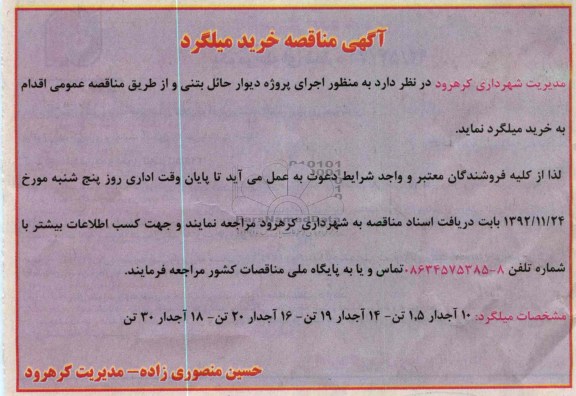 آگهی مناقصه خرید میلگرد
مدیریت شهرداری کرهرود در نظر دارد به منظور اجرای پروژه دیوار حائل بتنی و از طریق مناقصه عمومی اقدام
به خرید میلگرد نماید.
لذا از کلیه فروشندگان معتبر و واجد شرایط دعوت به عمل می آید تا پایان وقت اداری روز پنج شنبه مورخ
۱۳۹۲/۱۱/۲۴ بابت دریافت اسناد مناقصه به شهرداری کرهرود مراجعه نمایند و جهت کسب اطلاعات بیشتر با
شماره تلفن ۸-۰۸۶۳۴۵۷۵۳۸۵ تماس و یا به پایگاه ملی مناقصات کشور مراجعه فرمایند.
مشخصات میلگرد: ۱۰ آجدار ۱,۵ تن- ۱۴ آجدار ۱۹ تن- ۱۶ آجدار ۲۰ تن- ۱۸ آجدار ۳۰ تن
حسین منصوری زاده- مدیریت کرهرود